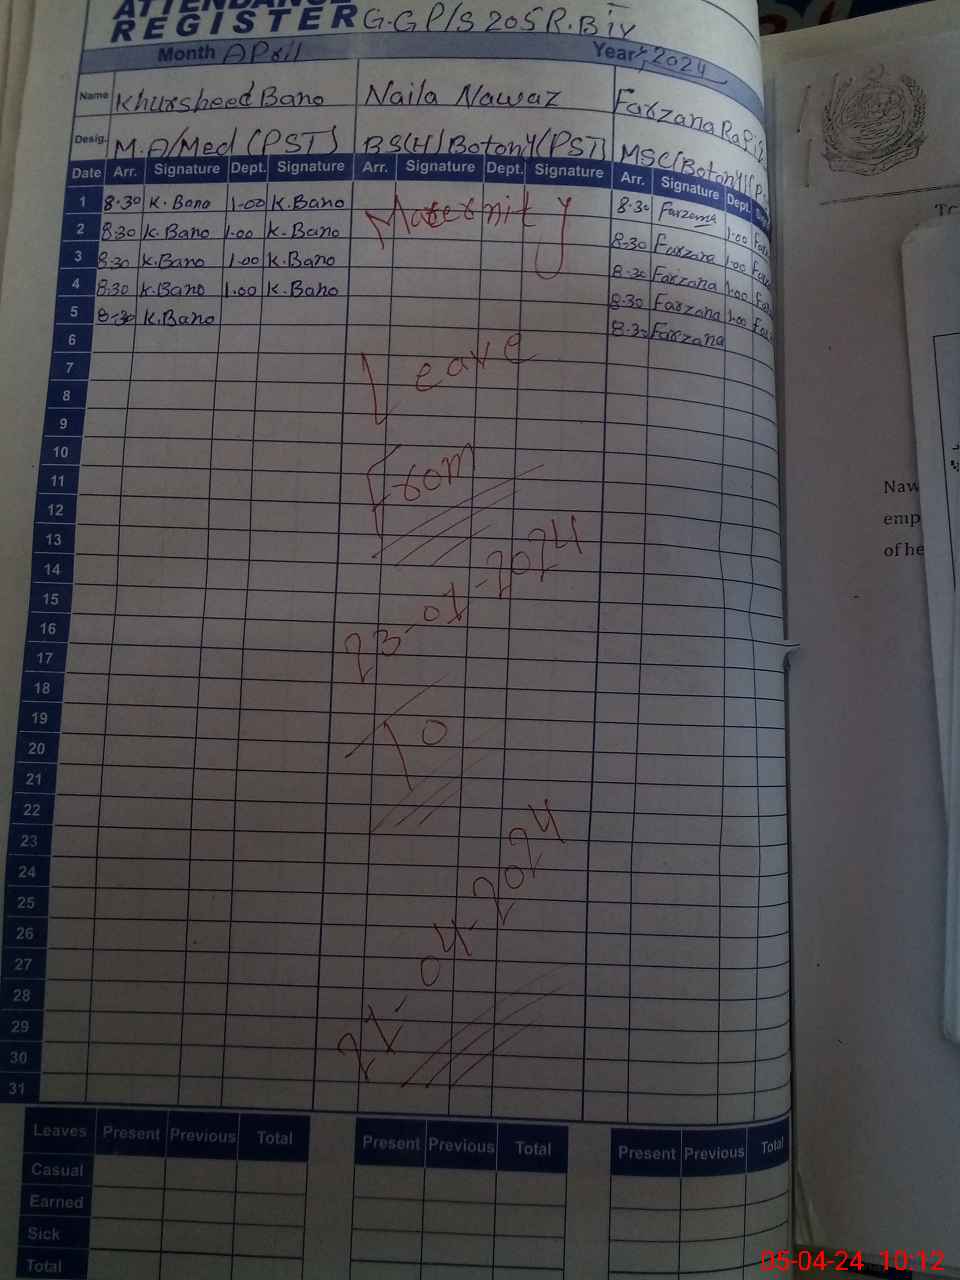 ATTENDANCE
REGISTER G.GP/S 205 R.B iv
Month April Year 2024
Name Khursheed Bano Naila Nawaz Farzana
Desig. M.A/Med (PST) BS(H) Botony (PST) MSC(Botony)
Date Arr. Signature Dept. Signature Arr. Signature Dept. Signature Arr. Signature Dept.
1 8-30 K. Bano 1-00 K. Bano Maternity 8-30 Farzana 1-00
2 8-30 K. Bano 1-00 K. Bano 8-30 Farzana 1-00
3 8-30 K. Bano 1-00 K. Bano 8-30 Farzana 1-00
4 8-30 K. Bano 1-00 K. Bano 8-30 Farzana 1-00
5 8-30 K. Bano 8-30 Farzana
6
7 Leave
8
9
10
11 From
12
13
14
15 23-01-2024
16
17
18
19
20 To
21
22
23
24
25
26
27 21-04-2024
28
29
30
31
Leaves Present Previous Total Present Previous Total Present Previous Total
Casual
Earned
Sick
Total
Naw
emp
of he
05-04-24 10:12